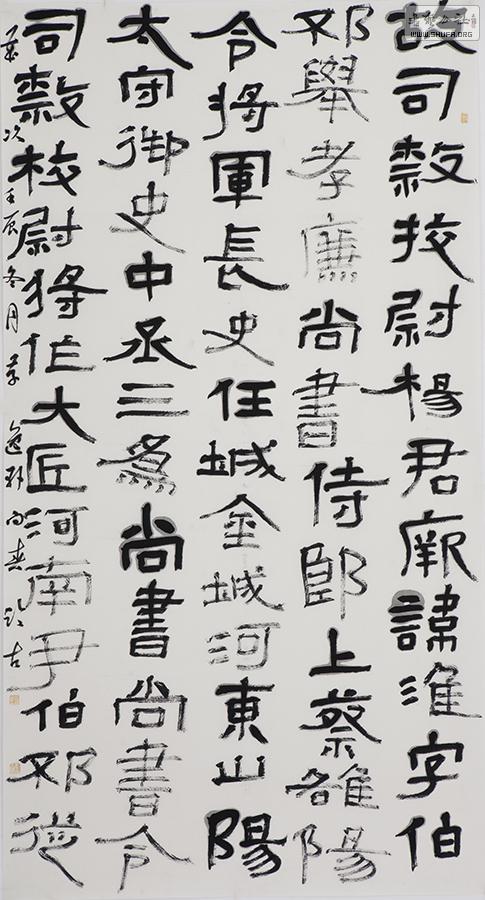 故司隸挍尉楊君厥諱淮字伯
邳舉孝廉尚書侍郎上蔡雒陽
令將軍長史任城金城河東山陽
太守御史中丞三為尚書尚書令
司隸校尉將作大匠河南尹伯邳從
歲次壬辰冬月
WWW.SHUFA.ORG